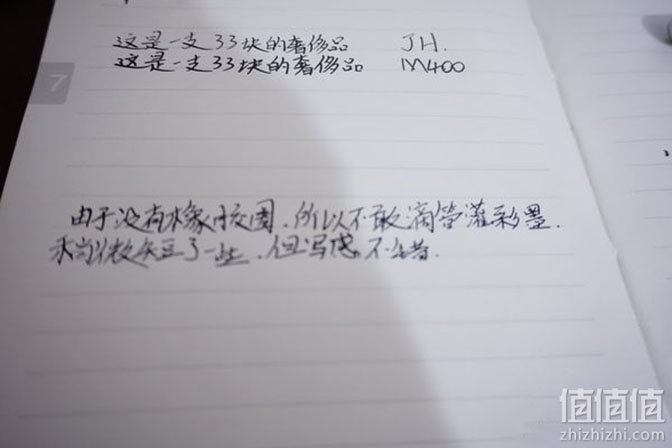 这是一支33块的奢侈品 JH.
这是一支33块的奢侈品 M400
7
由于没有橡胶圈,所以不敢滴管灌彩墨.
微短了一些,但写感不错.
值值值
zhizhizhi.com